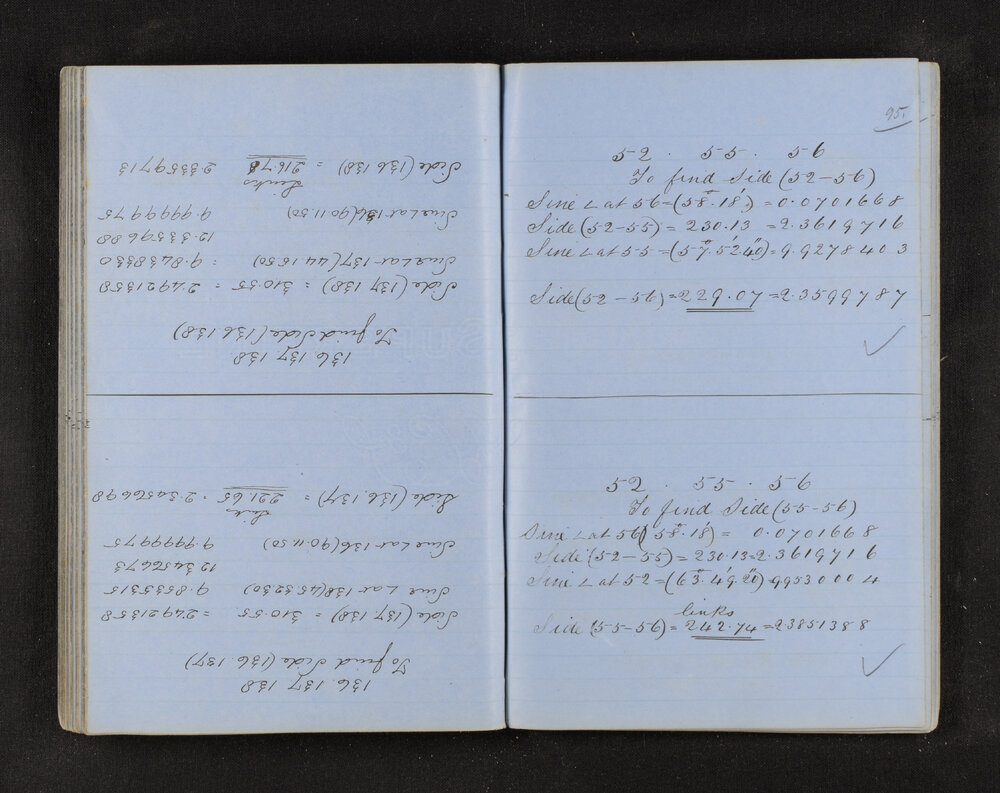 136. 137 138
To find Side (136 137)
Side (137.138) = 310.55 = 2.4921358
Sine ∠ at 138 (45.32.30) 9.8535315
12.3456673
Sine ∠ at 136 (90.11.50) 9.9999975
Links
Side (136.137) = 221.65 = 2.3456698
136 137 138
To find Side (136 138)
Side (137 138) = 310.55 = 2.4921358
Sine ∠ at 137 (44.15.50) = 9.8438330
12.3359688
Sine ∠ at 136 (90.11.50) 9.9999975
Links
Side (136 138) = 2.3359713
95.
52 . 55 . 56
To find Side (52-56)
Sine ∠ at 56 = (58°.18') = 0.0701668
Side (52-55) = 230.13 = 2.3619716
Sine ∠ at 55 = (57°.52'.40") = 9.9278403
Side (52-56) = 229.07 = 2.3599787
✓
52 . 55 . 56
To find Side (55-56)
Sine ∠ at 56 (58°.18') = 0.0701668
Side (52-55) = 230.13 = 2.3619716
Sine ∠ at 52 = (63°.49'.20") 9.9530004
links
Side (55-56) = 242.74 = 2.3851388
✓